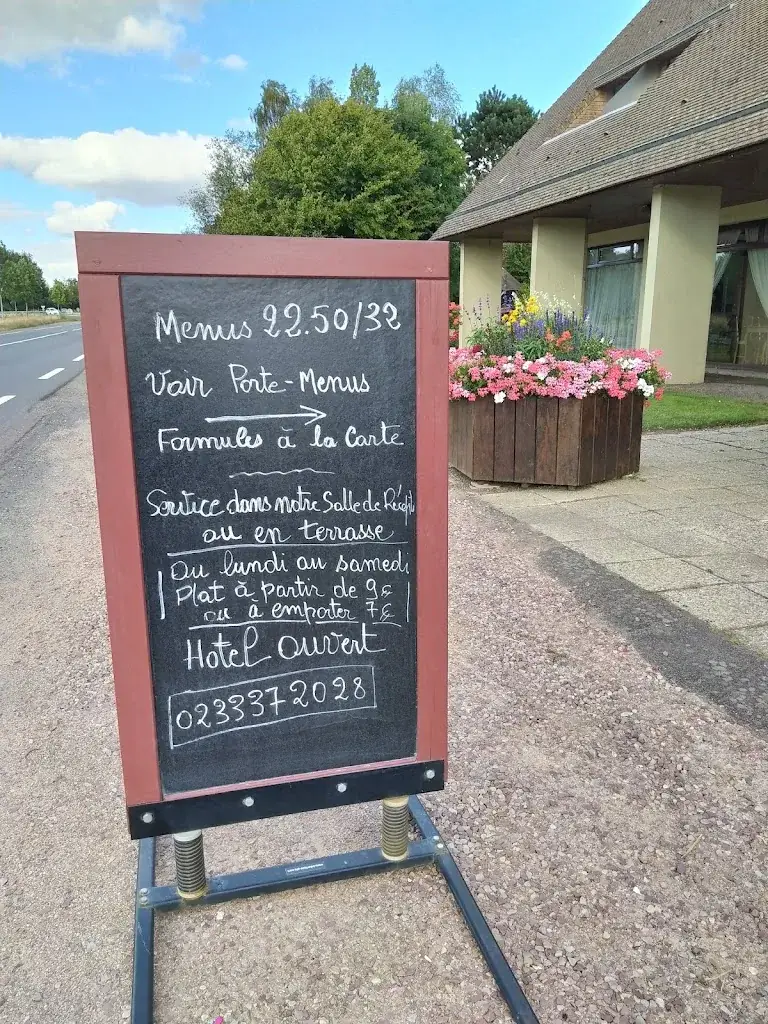 Menus 22.50/32
Voir Porte-Menus
Formules à la Carte
Service dans notre Salle de Récept
ou en terrasse
Du lundi au samedi
Plat à partir de 9€
ou à emporter 7€
Hotel ouvert
0233372028